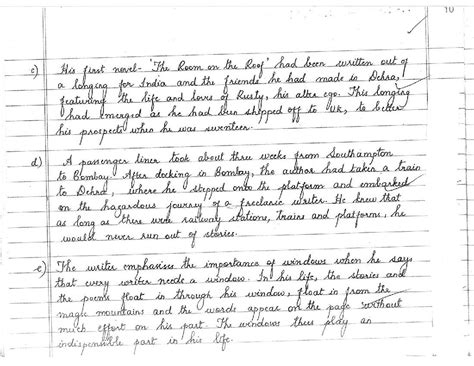 10
c) His first novel- 'The Room on the Roof' had been written out of
a longing for India and the friends he had made in Dehra,
featuring the life and loves of Rusty, his alter ego. This longing
had emerged as he had been shipped off to UK, to better
his prospects when he was seventeen.
d) A passenger liner took about three weeks from Southampton
to Bombay. After docking in Bombay, the author had taken a train
to Dehra, where he stepped onto the platform and embarked
on the hazardous journey of a freelance writer. He knew that
as long as there were railway stations, trains and platforms, he
would never run out of stories.
e) The writer emphasises the importance of windows when he says
that every writer needs a window. In his life, the stories and
the poems float in through his window, float in from the
magic mountains and the words appear on the page without
much effort on his part. The windows thus play an
indispensible part in his life.